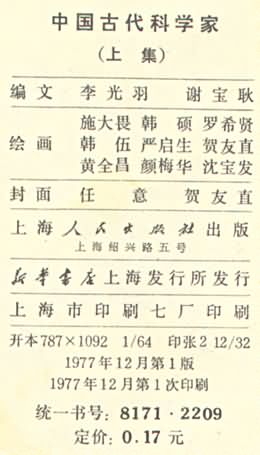 中国古代科学家
(上集)
编文 李光羽 谢宝耿
施大畏 韩硕 罗希贤
绘画 韩伍 严启生 贺友直
黄全昌 颜梅华 沈宝发
封面 任意 贺友直
上海人民出版社出版
上海绍兴路五号
新华书店上海发行所发行
上海市印刷七厂印刷
开本787×1092 1/64 印张2 12/32
1977年12月第1版
1977年12月第1次印刷
统一书号：8171·2209
定价：0.17元